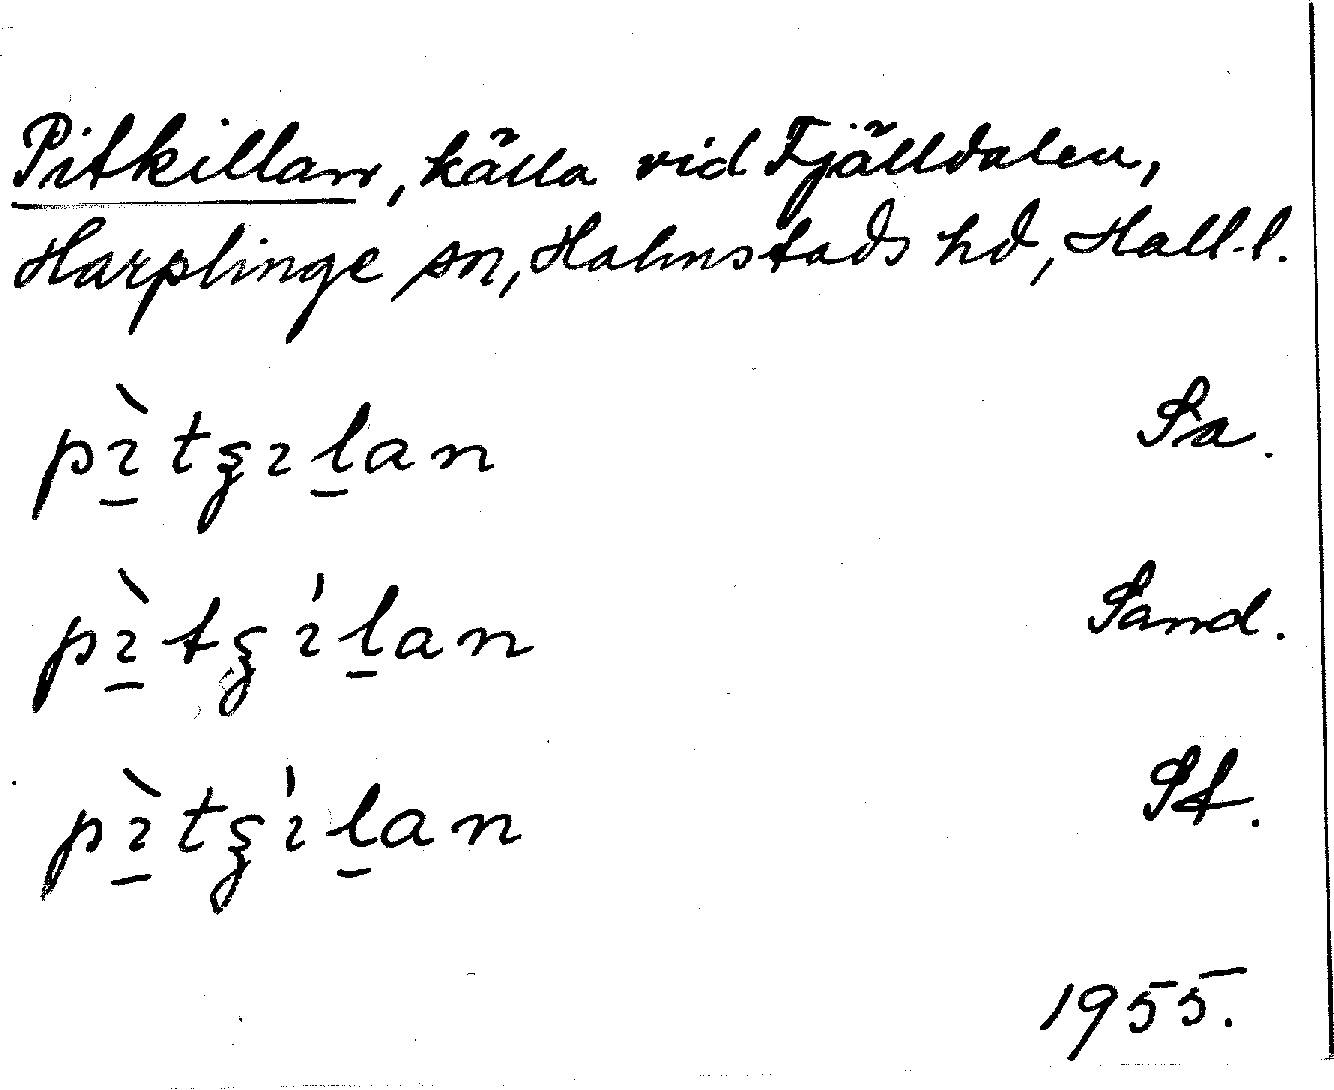 Pitkillan, källa vid Fjälldalen,
Harplinge sn, Halmstads hd, Hall-l.
pɪ̠̀tʒɪl̠an Sa.
pɪ̠̀tʒɪ̍l̠an Sand.
pɪ̠̀tʒɪ̍l̠an St.
1955.